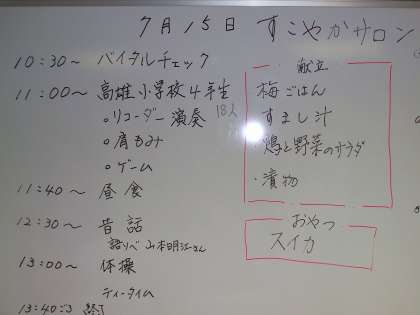 7月15日 すこやかサロン
10:30～ バイタルチェック
11:00～ 高雄小学校4年生
・リコーダー演奏 18人
・肩もみ
・ゲーム
11:40～ 昼食
12:30～ 昔話
語りべ 山本明江さん
13:00～ 体操
ティータイム
13:40ごろ 終了
献立
梅ごはん
すまし汁
鶏と野菜のサラダ
・漬物
おやつ
スイカ